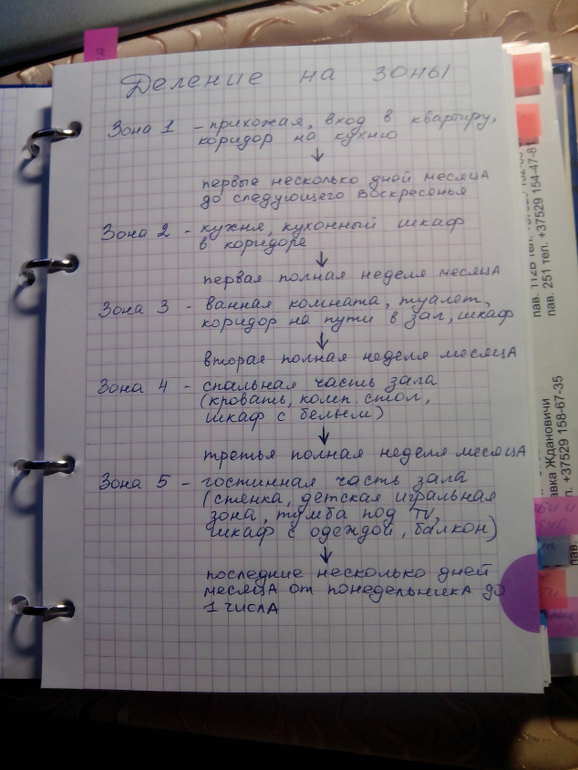 Деление на зоны
Зона 1 - прихожая, вход в квартиру,
коридор на кухню
первые несколько дней месяца
до следующего воскресенья
Зона 2 - кухня, кухонный шкаф
в коридоре
первая полная неделя месяца
Зона 3 - ванная комната, туалет,
коридор на пути в зал, шкаф
вторая полная неделя месяца
Зона 4 - спальная часть зала
(кровать, комп. стол,
шкаф с бельем)
третья полная неделя месяца
Зона 5 - гостинная часть зала
(стенка, детская игральная
зона, тумба под TV,
шкаф с одеждой, балкон)
последние несколько дней
месяца от понедельника до
1 числа
пав. 112Б тел.
пав. 251 тел. +37529 154-47-81
авка Ждановичи
+37529 158-67-35